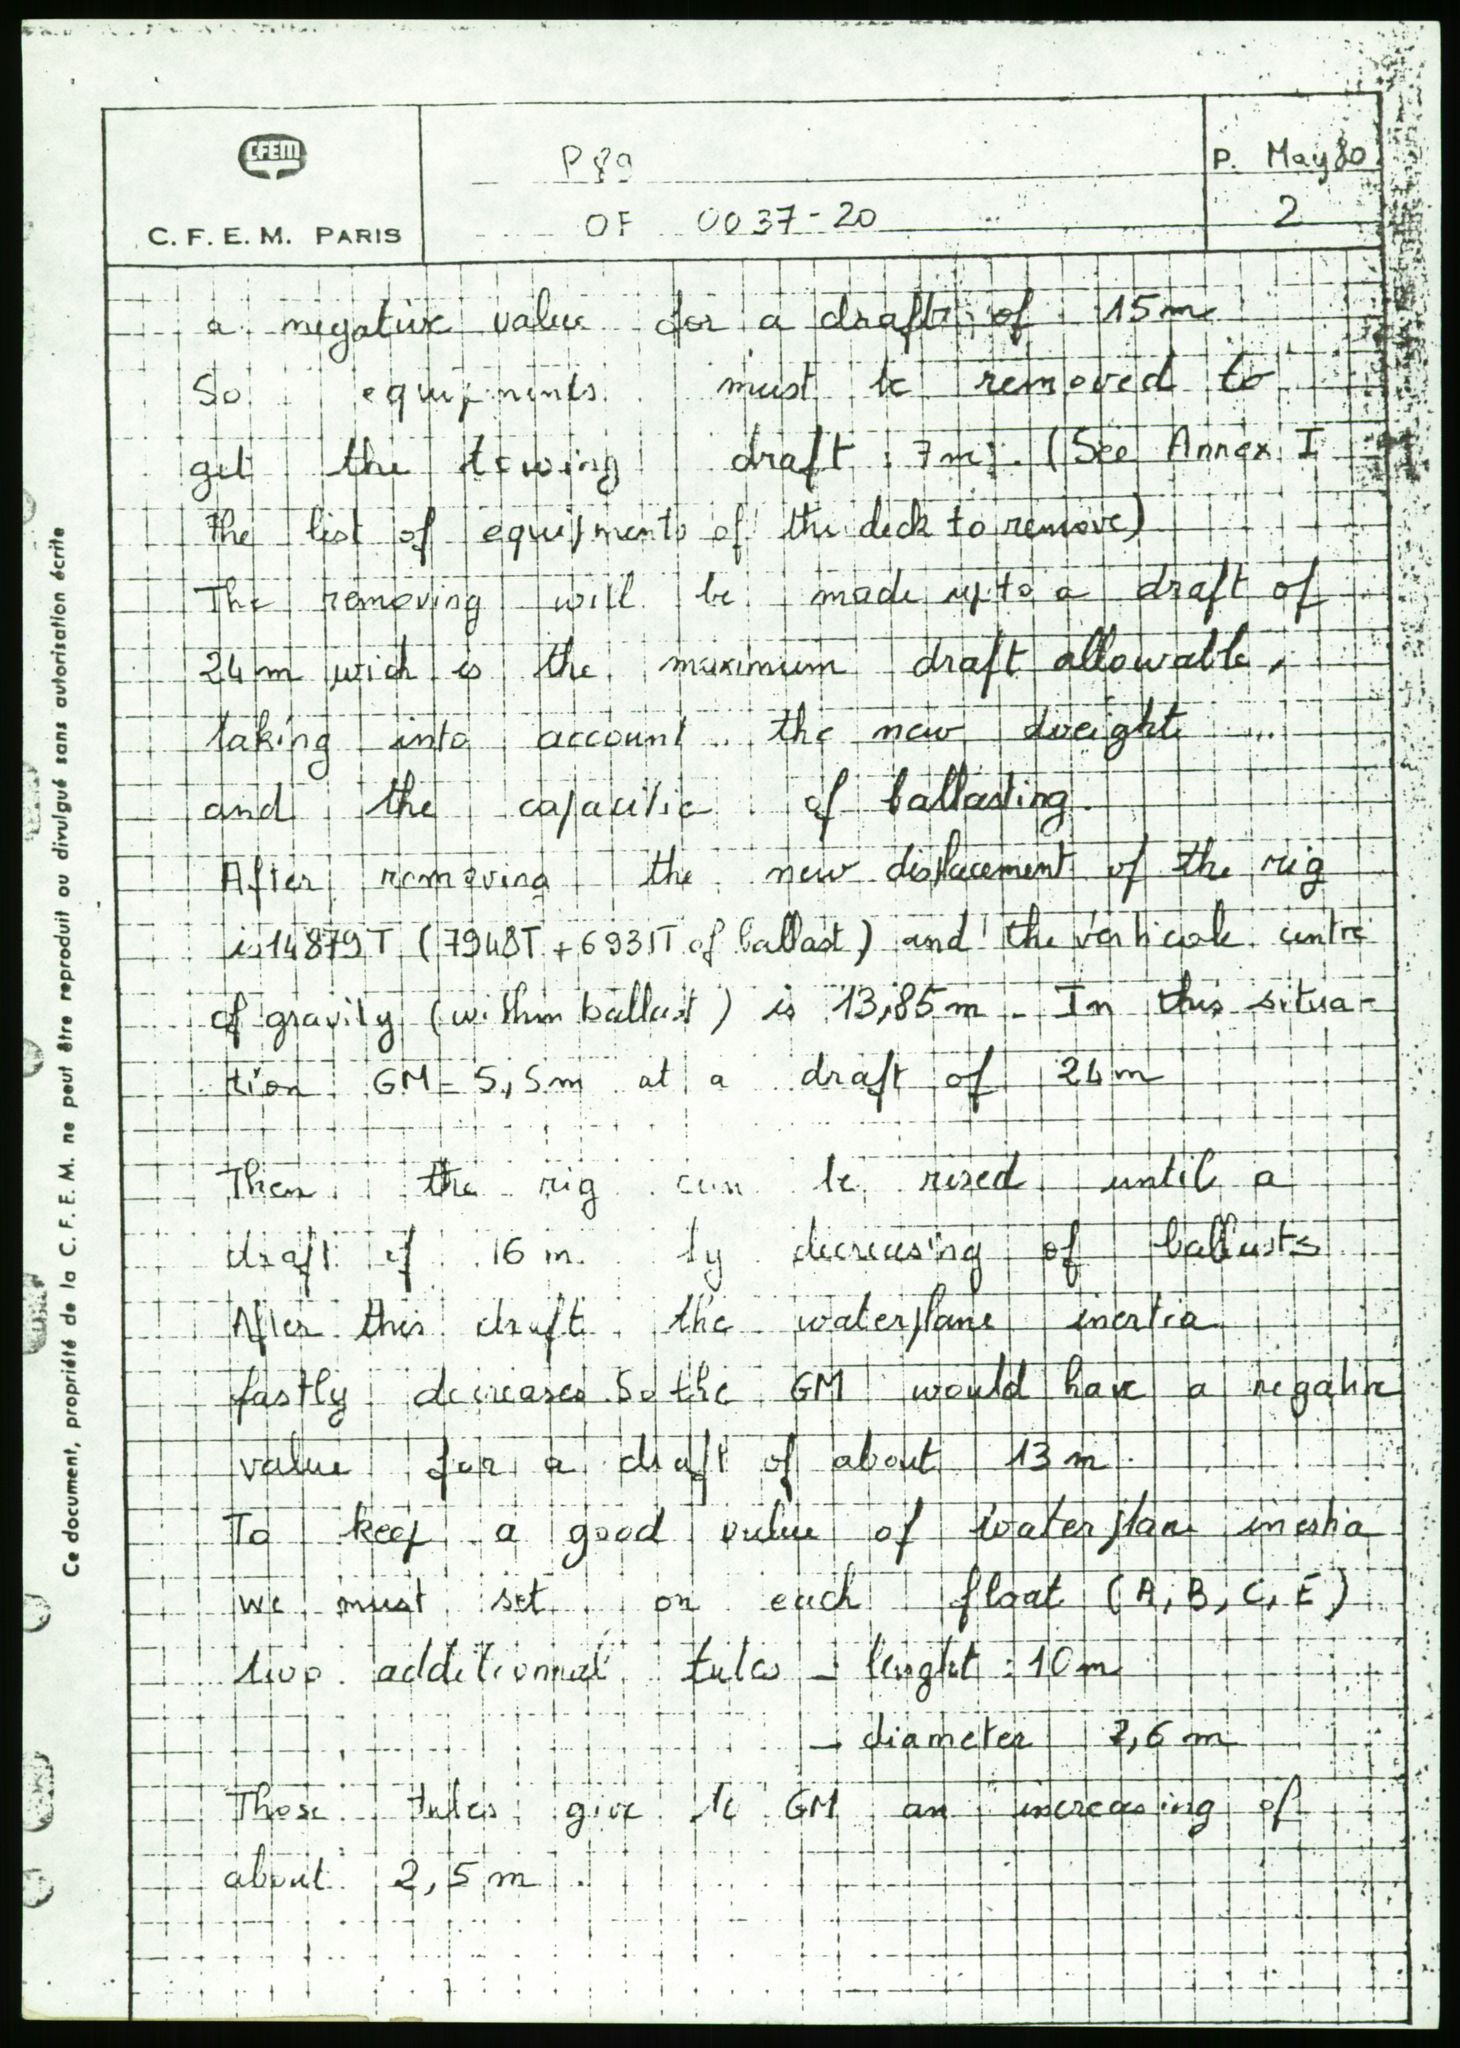 CFEM
C. F. E. M. PARIS
P89
OF 0037-20
P. May 80
2
a negative value for a draft of 15m
So equipments must be removed to
get the towing draft : 7m. (See Annex I
the list of equipments of the deck to remove)
The removing will be made up to a draft of
24m wich is the maximum draft allowable,
taking into account the new dweight ...
and the capacitie of ballasting.
After removing the new displacement of the rig
is 14879T (7948T + 6931T of ballast) and the verticale centre
of gravity (within ballast) is 13,85m - In this situa-
tion GM = 5,5m at a draft of 24m
Then the rig can be rised until a
draft of 16m by decreasing of ballasts
After this draft the waterplane inertia
fastly decreases So the GM would have a negative
value for a draft of about 13m.
To keep a good value of waterplane inertia
we must set on each float (A, B, C, E)
two additionnal tubes - lenght : 10m
- diameter 2,6m
These tubes give to GM an increasing of
about 2,5m.
Ce document, propriété de la C. F. E. M. ne peut être reproduit ou divulgué sans autorisation écrite